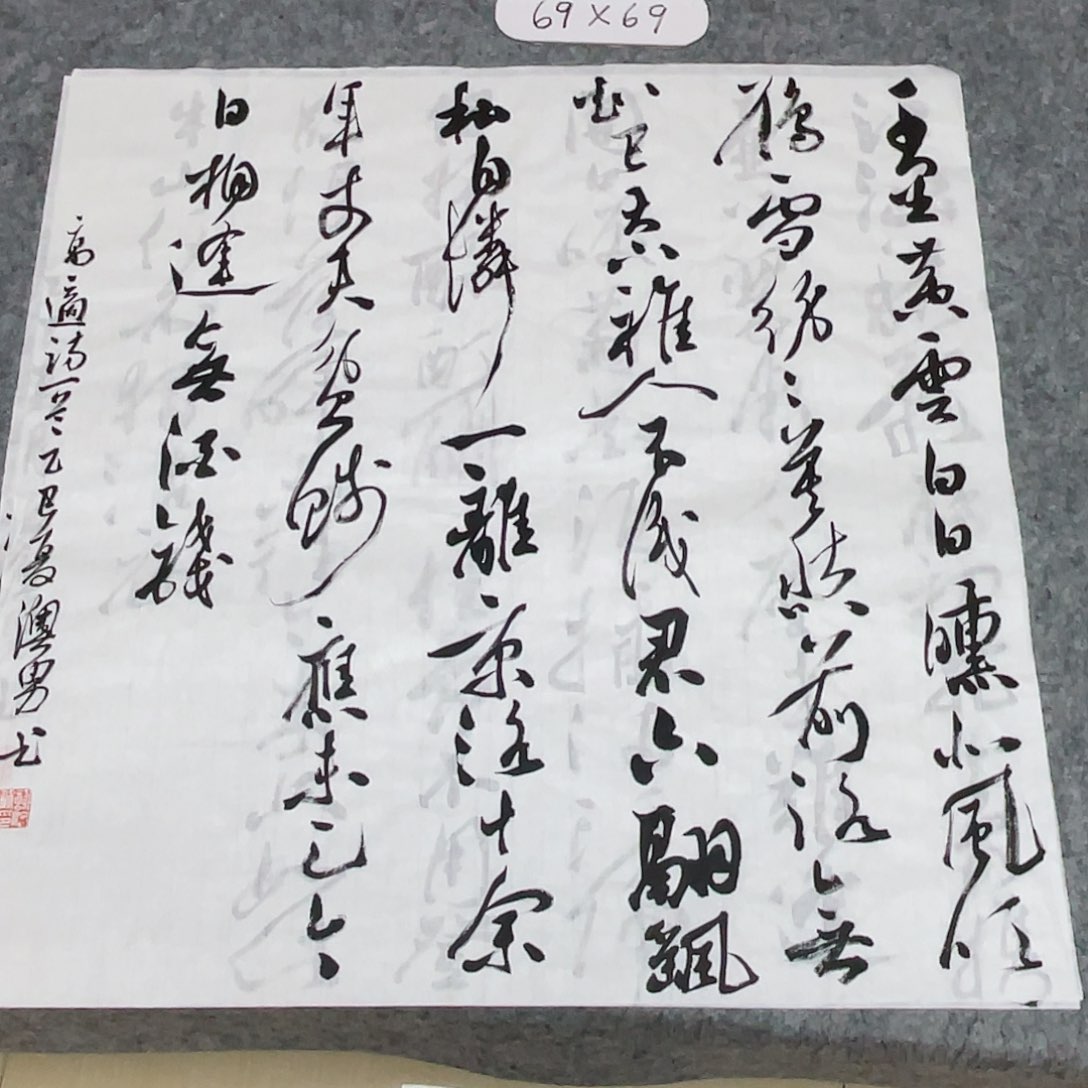 69×69
千里黄雲白日曛北風吹
雁雪紛〻莫愁前路無
知己天下誰人不識君六翮飄
私自憐一離京洛十余
年丈夫貧賤應未足今
日相逢無酒錢
高適詩一首乙巳夏澳男书